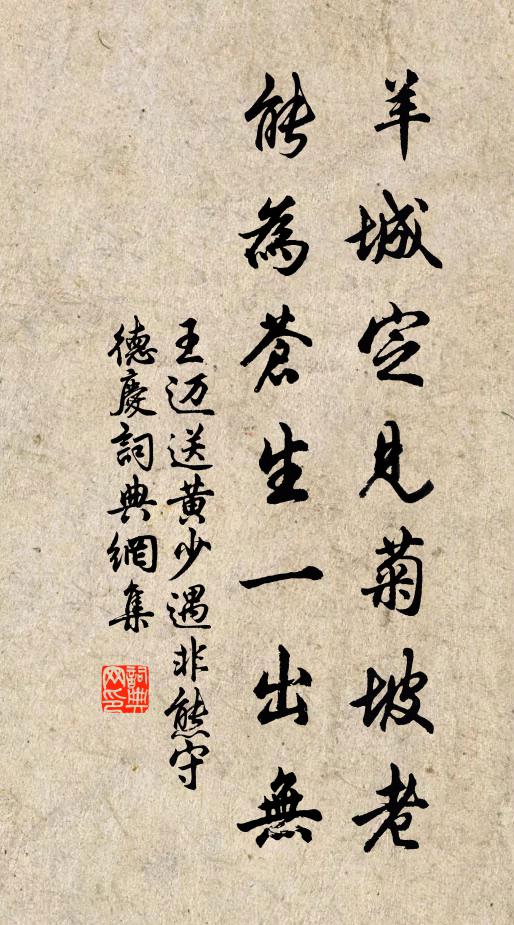 羊城定見菊坡老
能為蒼生一出無
王迈送黄少遇非熊守
德慶詞典網集
詞典
网印